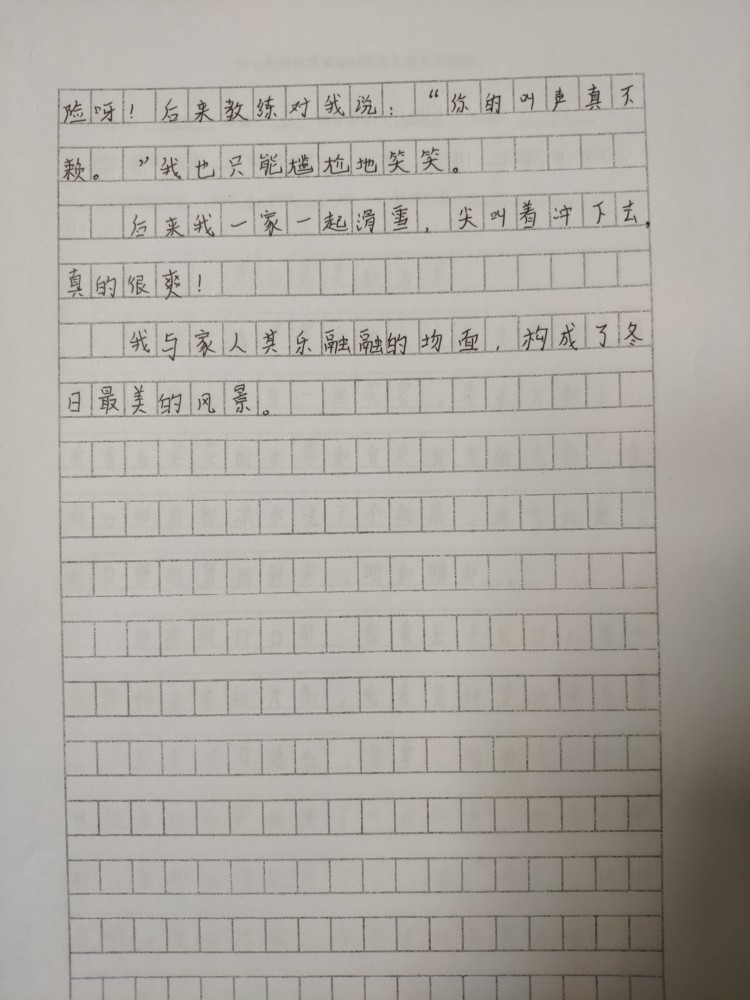 险呀！后来教练对我说：“你的叫声真不
赖。”我也只能尴尬地笑笑。
后来我一家一起滑雪，尖叫着冲下去，
真的很爽！
我与家人其乐融融的场面，构成了冬
日最美的风景。